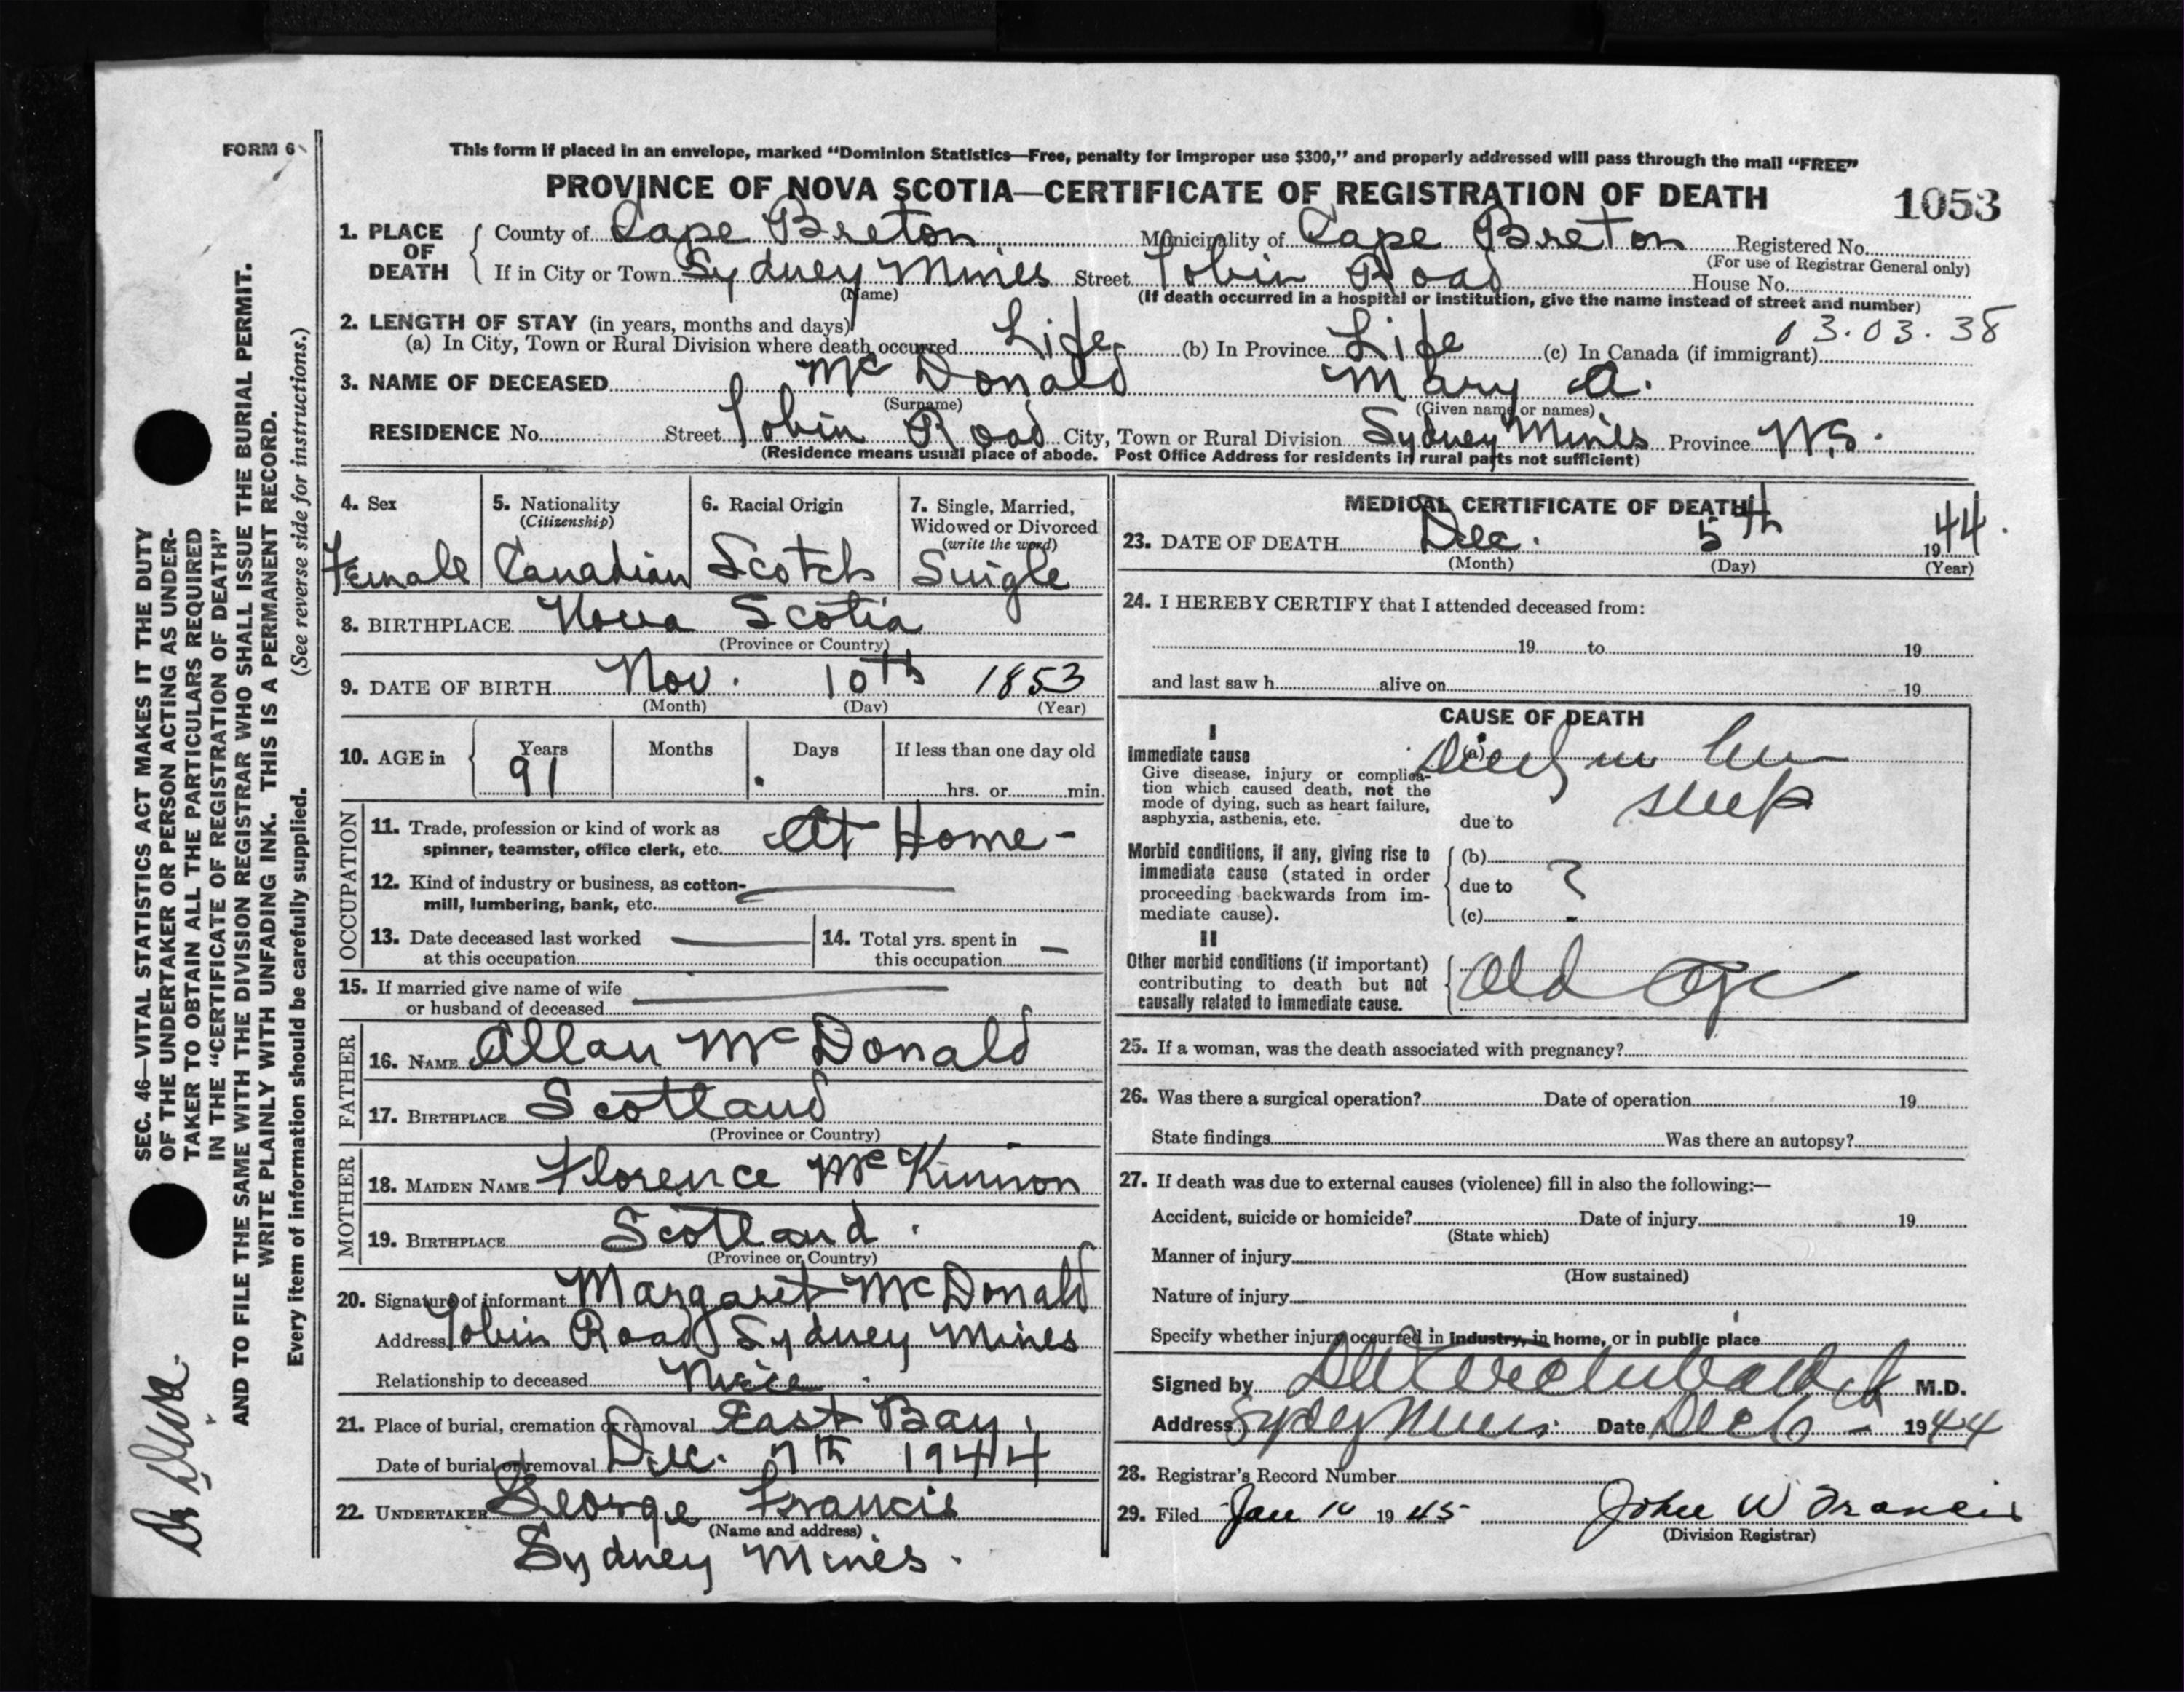 FORM 6
This form if placed in an envelope, marked “Dominion Statistics—Free, penalty for improper use $300,” and properly addressed will pass through the mail “FREE”
PROVINCE OF NOVA SCOTIA—CERTIFICATE OF REGISTRATION OF DEATH
1053
1. PLACE OF DEATH
County of Cape Breton Municipality of Cape Breton Registered No.
(For use of Registrar General only)
If in City or Town Sydney Mines Street Tobin Road House No.
(Name)
(If death occurred in a hospital or institution, give the name instead of street and number)
2. LENGTH OF STAY (in years, months and days)
03.03.38
(a) In City, Town or Rural Division where death occurred Life (b) In Province Life (c) In Canada (if immigrant)
3. NAME OF DECEASED McDonald Mary A.
(Surname) (Given name or names)
RESIDENCE No. Street Tobin Road City, Town or Rural Division Sydney Mines Province N.S.
(Residence means usual place of abode. Post Office Address for residents in rural parts not sufficient)
4. Sex
Female
5. Nationality
(Citizenship)
Canadian
6. Racial Origin
Scotch
7. Single, Married,
Widowed or Divorced
(write the word)
Single
8. BIRTHPLACE Nova Scotia
(Province or Country)
9. DATE OF BIRTH Nov. 10th 1853
(Month) (Day) (Year)
10. AGE in
Years Months Days If less than one day old
91 hrs. or min.
OCCUPATION
11. Trade, profession or kind of work as
spinner, teamster, office clerk, etc. At Home -
12. Kind of industry or business, as cotton-
mill, lumbering, bank, etc.
13. Date deceased last worked
at this occupation
14. Total yrs. spent in
this occupation —
15. If married give name of wife
or husband of deceased
FATHER
16. NAME Allan McDonald
17. BIRTHPLACE Scotland
(Province or Country)
MOTHER
18. MAIDEN NAME Florence McKinnon
19. BIRTHPLACE Scotland.
(Province or Country)
20. Signature of informant Margaret McDonald
Address Tobin Road Sydney Mines
Relationship to deceased Niece.
21. Place of burial, cremation or removal East Bay,
Date of burial or removal Dec. 7th 1944
22. UNDERTAKER George Francis
(Name and address)
Sydney Mines.
MEDICAL CERTIFICATE OF DEATH
23. DATE OF DEATH Dec. 5th 1944.
(Month) (Day) (Year)
24. I HEREBY CERTIFY that I attended deceased from:
19 to 19
and last saw h alive on 19
CAUSE OF DEATH
I
Immediate cause
Give disease, injury or complica-
tion which caused death, not the
mode of dying, such as heart failure,
asphyxia, asthenia, etc.
(a) Died in her
due to sleep
Morbid conditions, if any, giving rise to
immediate cause (stated in order
proceeding backwards from im-
mediate cause).
(b)
due to ?
(c)
II
Other morbid conditions (if important)
contributing to death but not
causally related to immediate cause.
Old Age
25. If a woman, was the death associated with pregnancy?
26. Was there a surgical operation? Date of operation 19
State findings Was there an autopsy?
27. If death was due to external causes (violence) fill in also the following:—
Accident, suicide or homicide? Date of injury 19
(State which)
Manner of injury
(How sustained)
Nature of injury
Specify whether injury occurred in industry, in home, or in public place
Signed by Archibald M.D.
Address Sydney Mines. Date Dec 6 - 1944
28. Registrar's Record Number
29. Filed Jan 10 1945 John W Francis
(Division Registrar)
SEC. 46—VITAL STATISTICS ACT MAKES IT THE DUTY
OF THE UNDERTAKER OR PERSON ACTING AS UNDER-
TAKER TO OBTAIN ALL THE PARTICULARS REQUIRED
IN THE “CERTIFICATE OF REGISTRATION OF DEATH”
AND TO FILE THE SAME WITH THE DIVISION REGISTRAR WHO SHALL ISSUE THE BURIAL PERMIT.
WRITE PLAINLY WITH UNFADING INK. THIS IS A PERMANENT RECORD.
Every item of information should be carefully supplied. (See reverse side for instructions.)